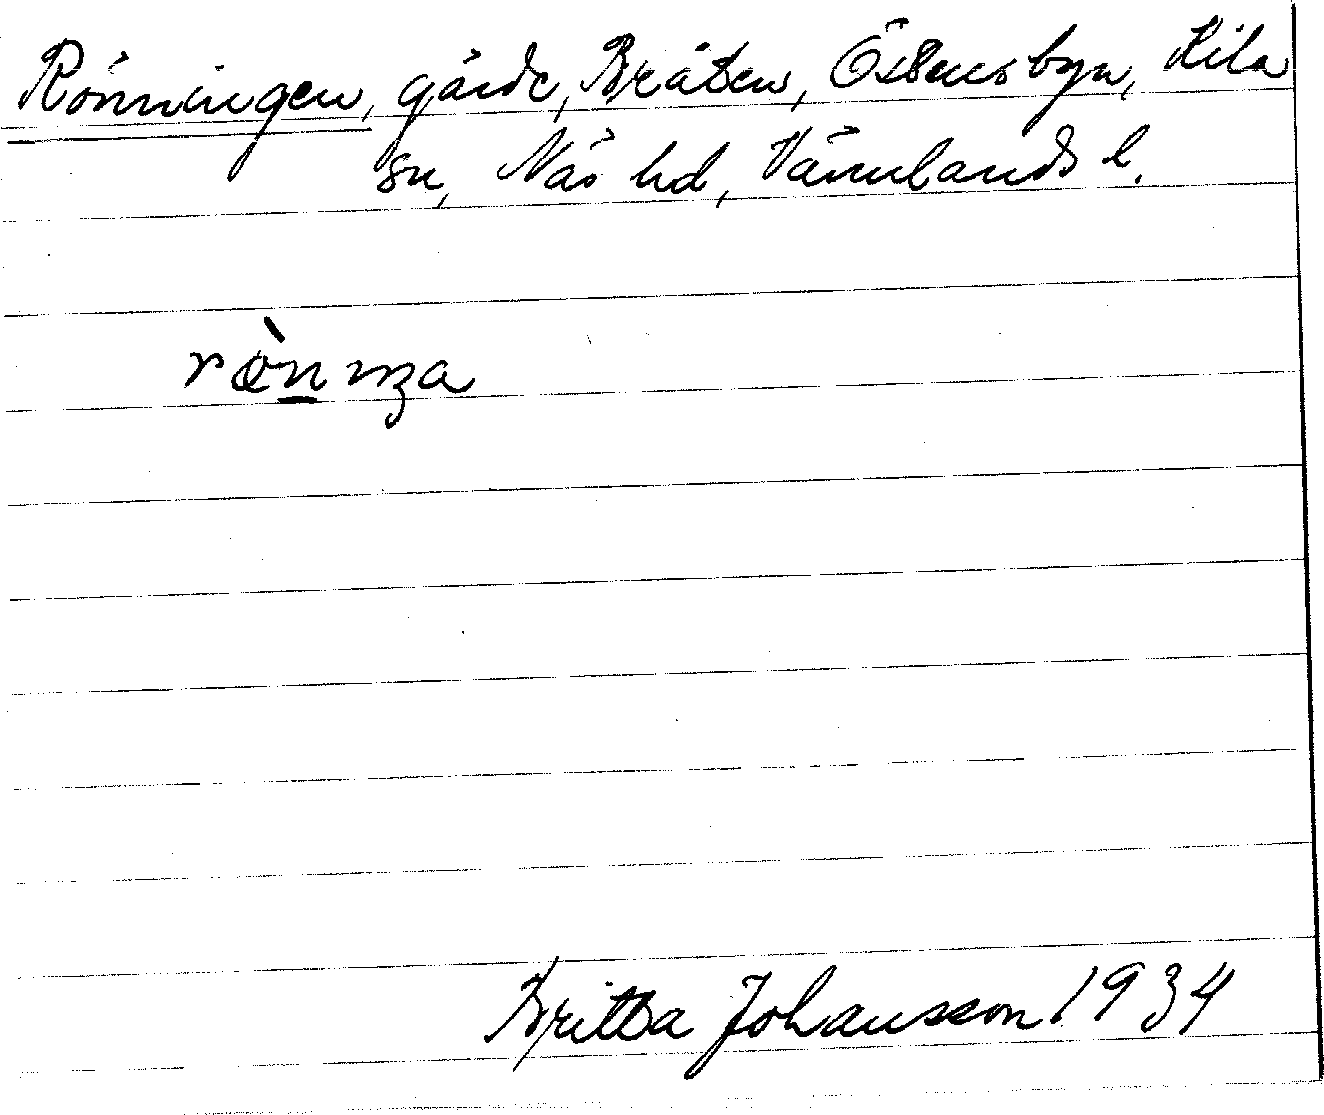 Rönningen, gärde, Bråten, Östensbyn, Kila
sn, Näs hd, Värmlands l.
Britta Johansson 1934